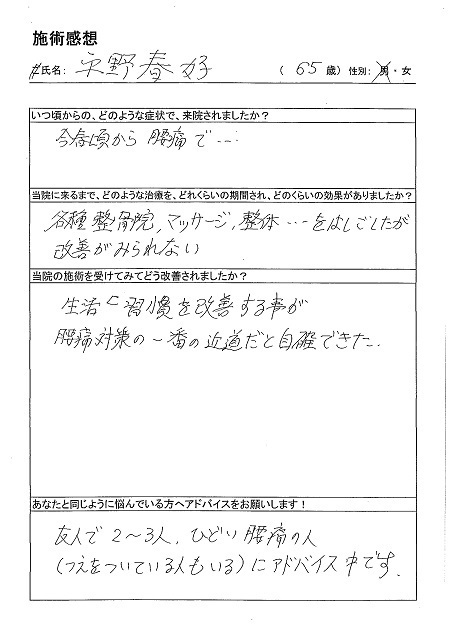 施術感想
氏名: 野春好 (65歳) 性別: 男・女
いつ頃からの、どのような症状で、来院されましたか?
今春頃から 腰痛で…
当院に来るまで、どのような治療を、どれくらいの期間され、どのくらいの効果がありましたか?
各種整骨院,マッサージ,整体…をはしごしたが
改善がみられない
当院の施術を受けてみてどう改善されましたか?
生活と習慣を改善する事が
腰痛対策の一番の近道だと自確できた.
あなたと同じように悩んでいる方へアドバイスをお願いします!
友人で2~3人,ひどい腰痛の人
(つえをついている人もいる)にアドバイス中です.